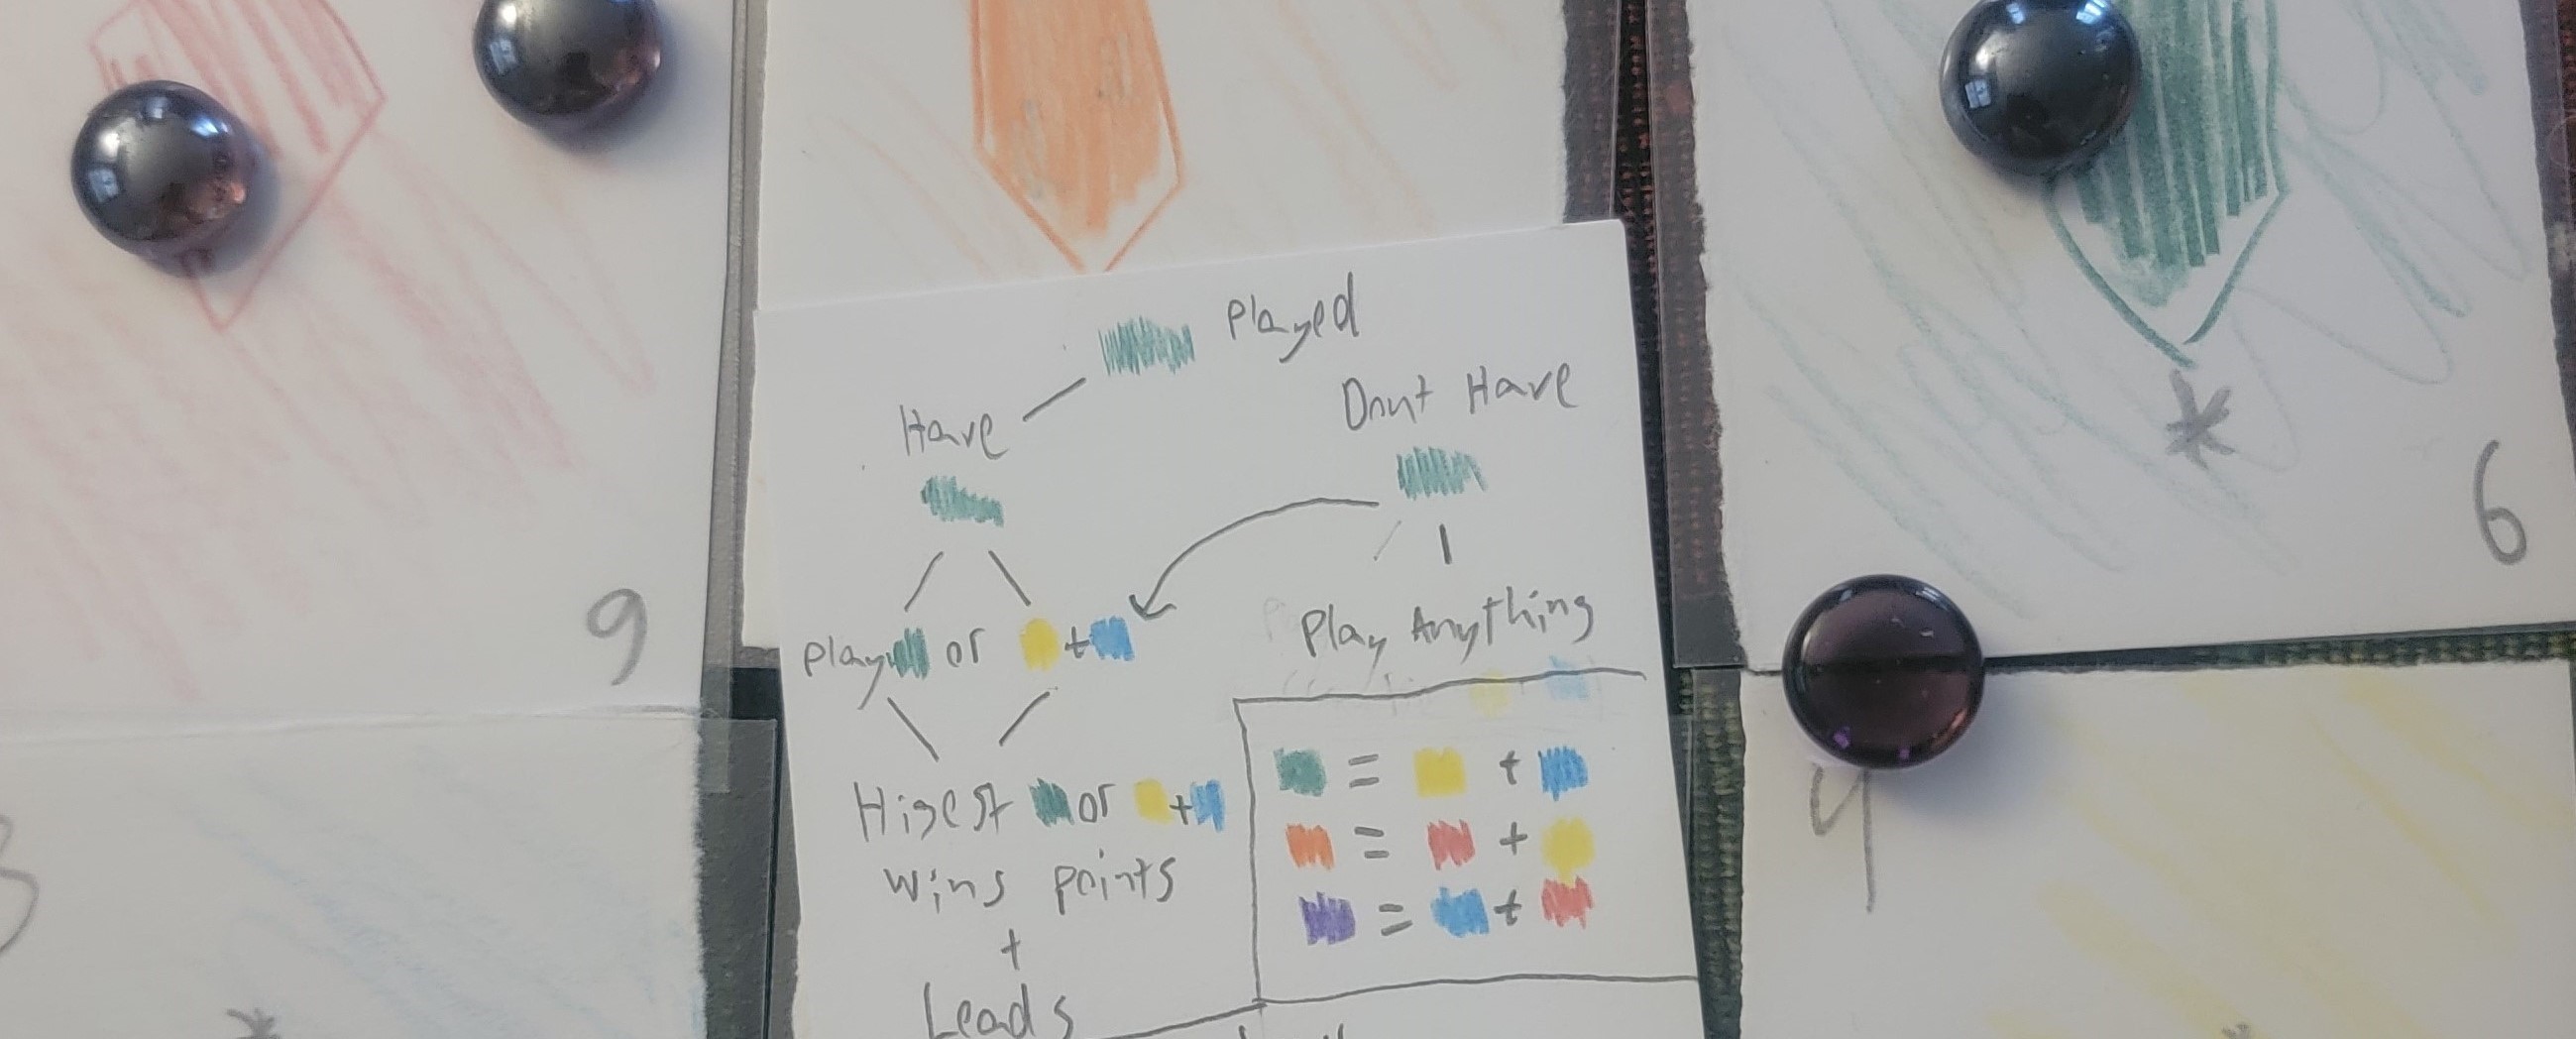 Played
Have
Dont Have
Play or +
Play Anything
Higest or +
wins points
+
Leads
= +
= +
= +
9
6
4
3
*
*